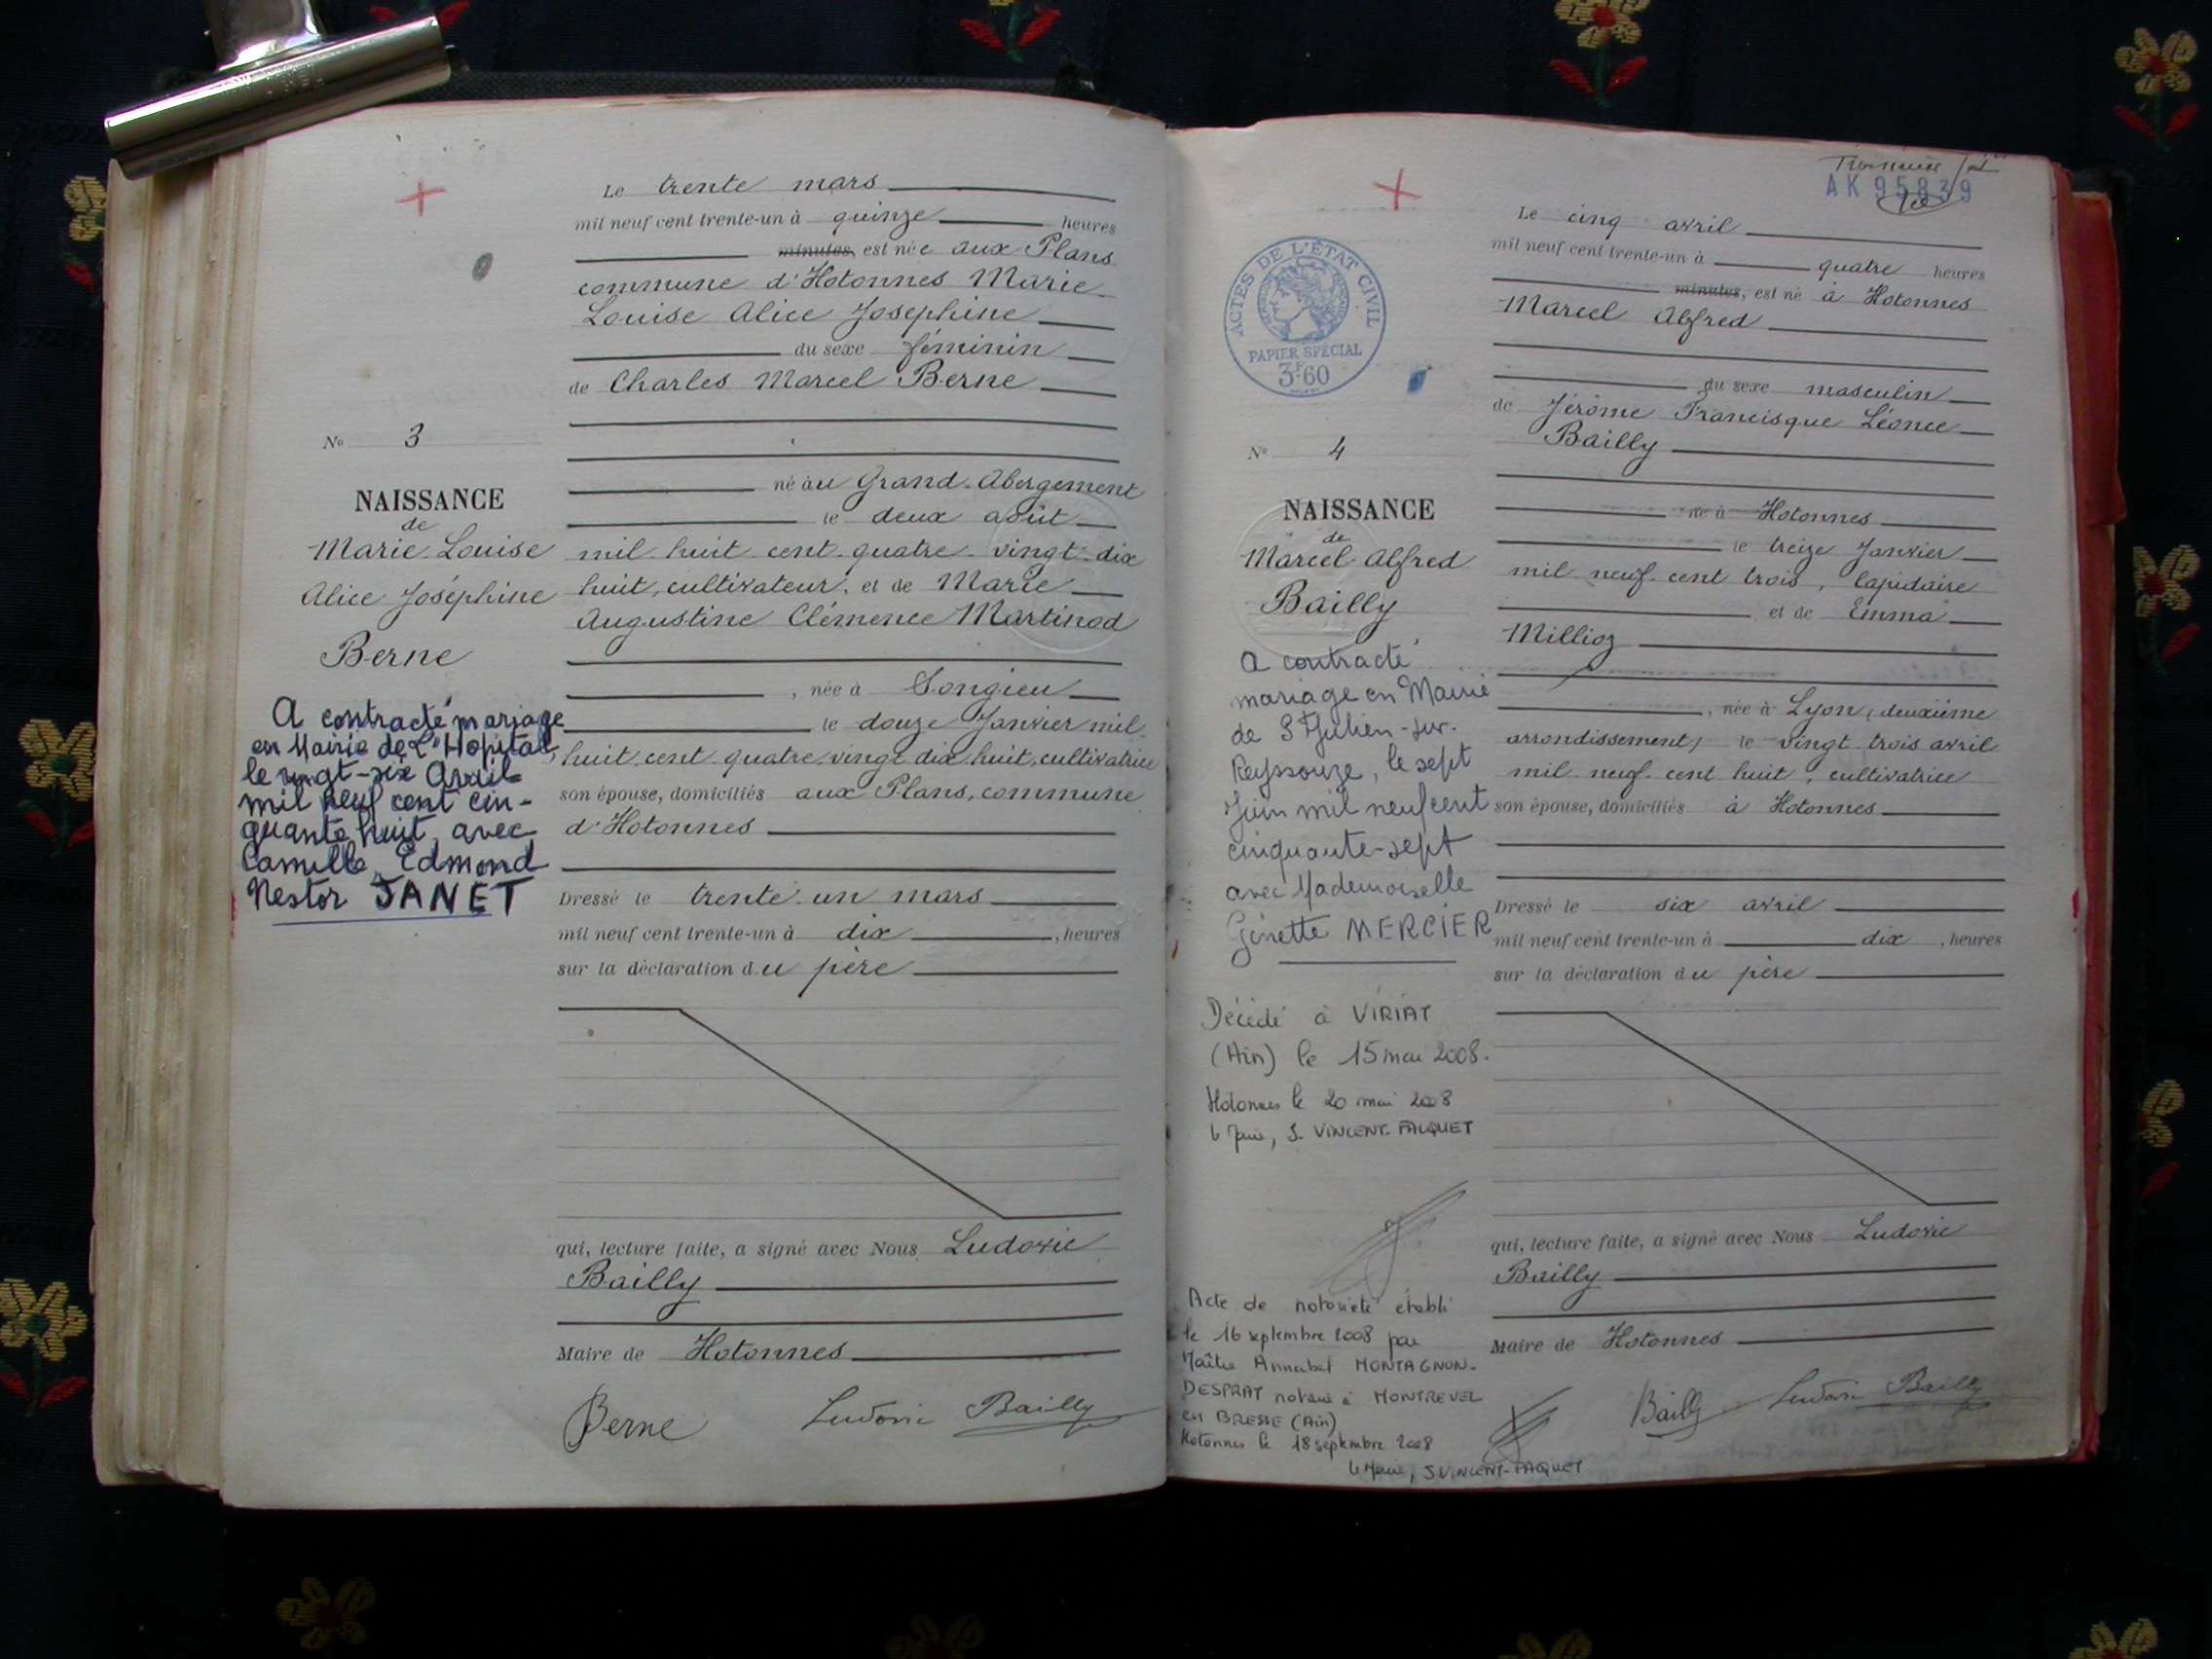 Le trente mars
mil neuf cent trente-un à quinze heures
minutes, est née aux Plans
commune d'Hotonnes Marie
Louise Alice Joséphine
du sexe féminin
de Charles Marcel Berne
né au Grand-Abergement
le deux août
mil huit cent quatre-vingt-dix
huit, cultivateur, et de Marie
Augustine Clémence Martinod
, née à Songieu
le douze Janvier mil
huit cent quatre vingt dix huit, cultivatrice
son épouse, domiciliés aux Plans, commune
d'Hotonnes
Dressé le trente un mars
mil neuf cent trente-un à dix , heures
sur la déclaration du père
qui, lecture faite, a signé avec Nous Ludovic
Bailly
Maire de Hotonnes
Berne Ludovic Bailly
No 3
NAISSANCE
de
Marie Louise
Alice Joséphine
Berne
A contracté mariage
en Mairie de L'Hopital,
le vingt-six Avril
mil neuf cent cin-
quante huit avec
Camille Edmond
Nestor JANET
AK 95839
Le cinq avril
mil neuf cent trente-un à quatre heures
minutes, est né à Hotonnes
Marcel Alfred
du sexe masculin
de Jérôme Francisque Léonce
Bailly
né à Hotonnes
le treize Janvier
mil neuf cent trois, lapidaire
et de Emma
Millioz
, née à Lyon, (deuxième
arrondissement) le vingt trois avril
mil neuf cent huit, cultivatrice
son épouse, domiciliés à Hotonnes
Dressé le six avril
mil neuf cent trente-un à dix , heures
sur la déclaration du père
qui, lecture faite, a signé avec Nous Ludovic
Bailly
Maire de Hotonnes
Bailly Ludovic Bailly
ACTES DE L'ÉTAT CIVIL
PAPIER SPÉCIAL
3F60
No 4
NAISSANCE
de
Marcel Alfred
Bailly
A contracté
mariage en Mairie
de St Julien-sur-
Reyssouze, le sept
Juin mil neuf cent
cinquante-sept
avec Mademoiselle
Ginette MERCIER
Décédé à VIRIAT
(Ain) le 15 mai 2008.
Hotonnes le 20 mai 2008
le Maire, S. VINCENT-FALQUET
Acte de notoriété établi
le 16 septembre 2008 par
Maître Annabel MONTAGNON-
DESPRAT notaire à MONTREVEL
en BRESSE (Ain)
Hotonnes le 18 septembre 2008
le Maire, S VINCENT-FALQUET